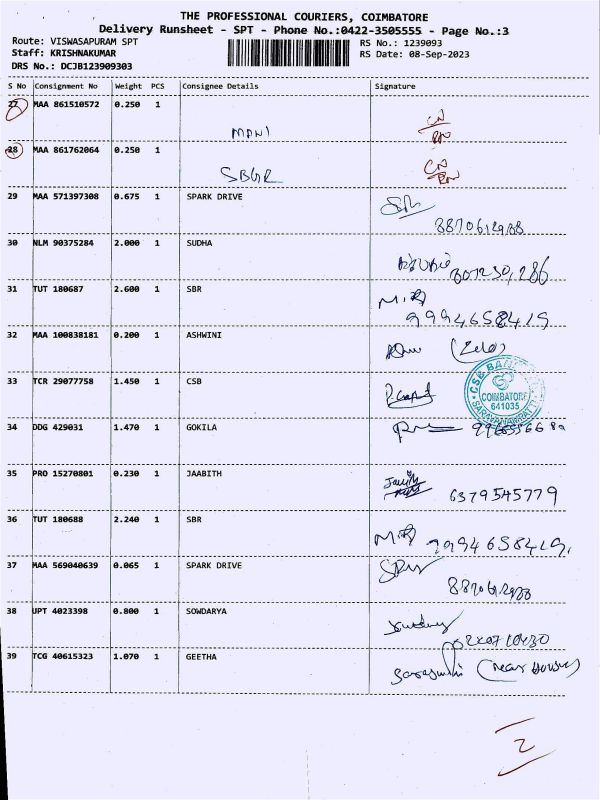 THE PROFESSIONAL COURIERS, COIMBATORE
Delivery Runsheet - SPT - Phone No.:0422-3505555 - Page No.:3
Route: VISWASAPURAM SPT RS No.: 1239093
Staff: KRISHNAKUMAR RS Date: 08-Sep-2023
DRS No.: DCJB123909303
S No Consignment No Weight PCS Consignee Details Signature
27 MAA 861510572 0.250 1
MANI CN/RN
28 MAA 861762064 0.250 1
SBGR CN/RN
29 MAA 571397308 0.675 1 SPARK DRIVE
30 NLM 90375284 2.000 1 SUDHA
31 TUT 180687 2.600 1 SBR
9994658419
32 MAA 100838181 0.200 1 ASHWINI
33 TCR 29077758 1.450 1 CSB
CSB BANK
COIMBATORE
641035
34 DDG 429031 1.470 1 GOKILA
35 PRO 15270801 0.230 1 JAABITH
6379545779
36 TUT 180688 2.240 1 SBR
9994658419
37 MAA 569040639 0.065 1 SPARK DRIVE
38 UPT 4023398 0.800 1 SOWDARYA
39 TCG 40615323 1.070 1 GEETHA
2